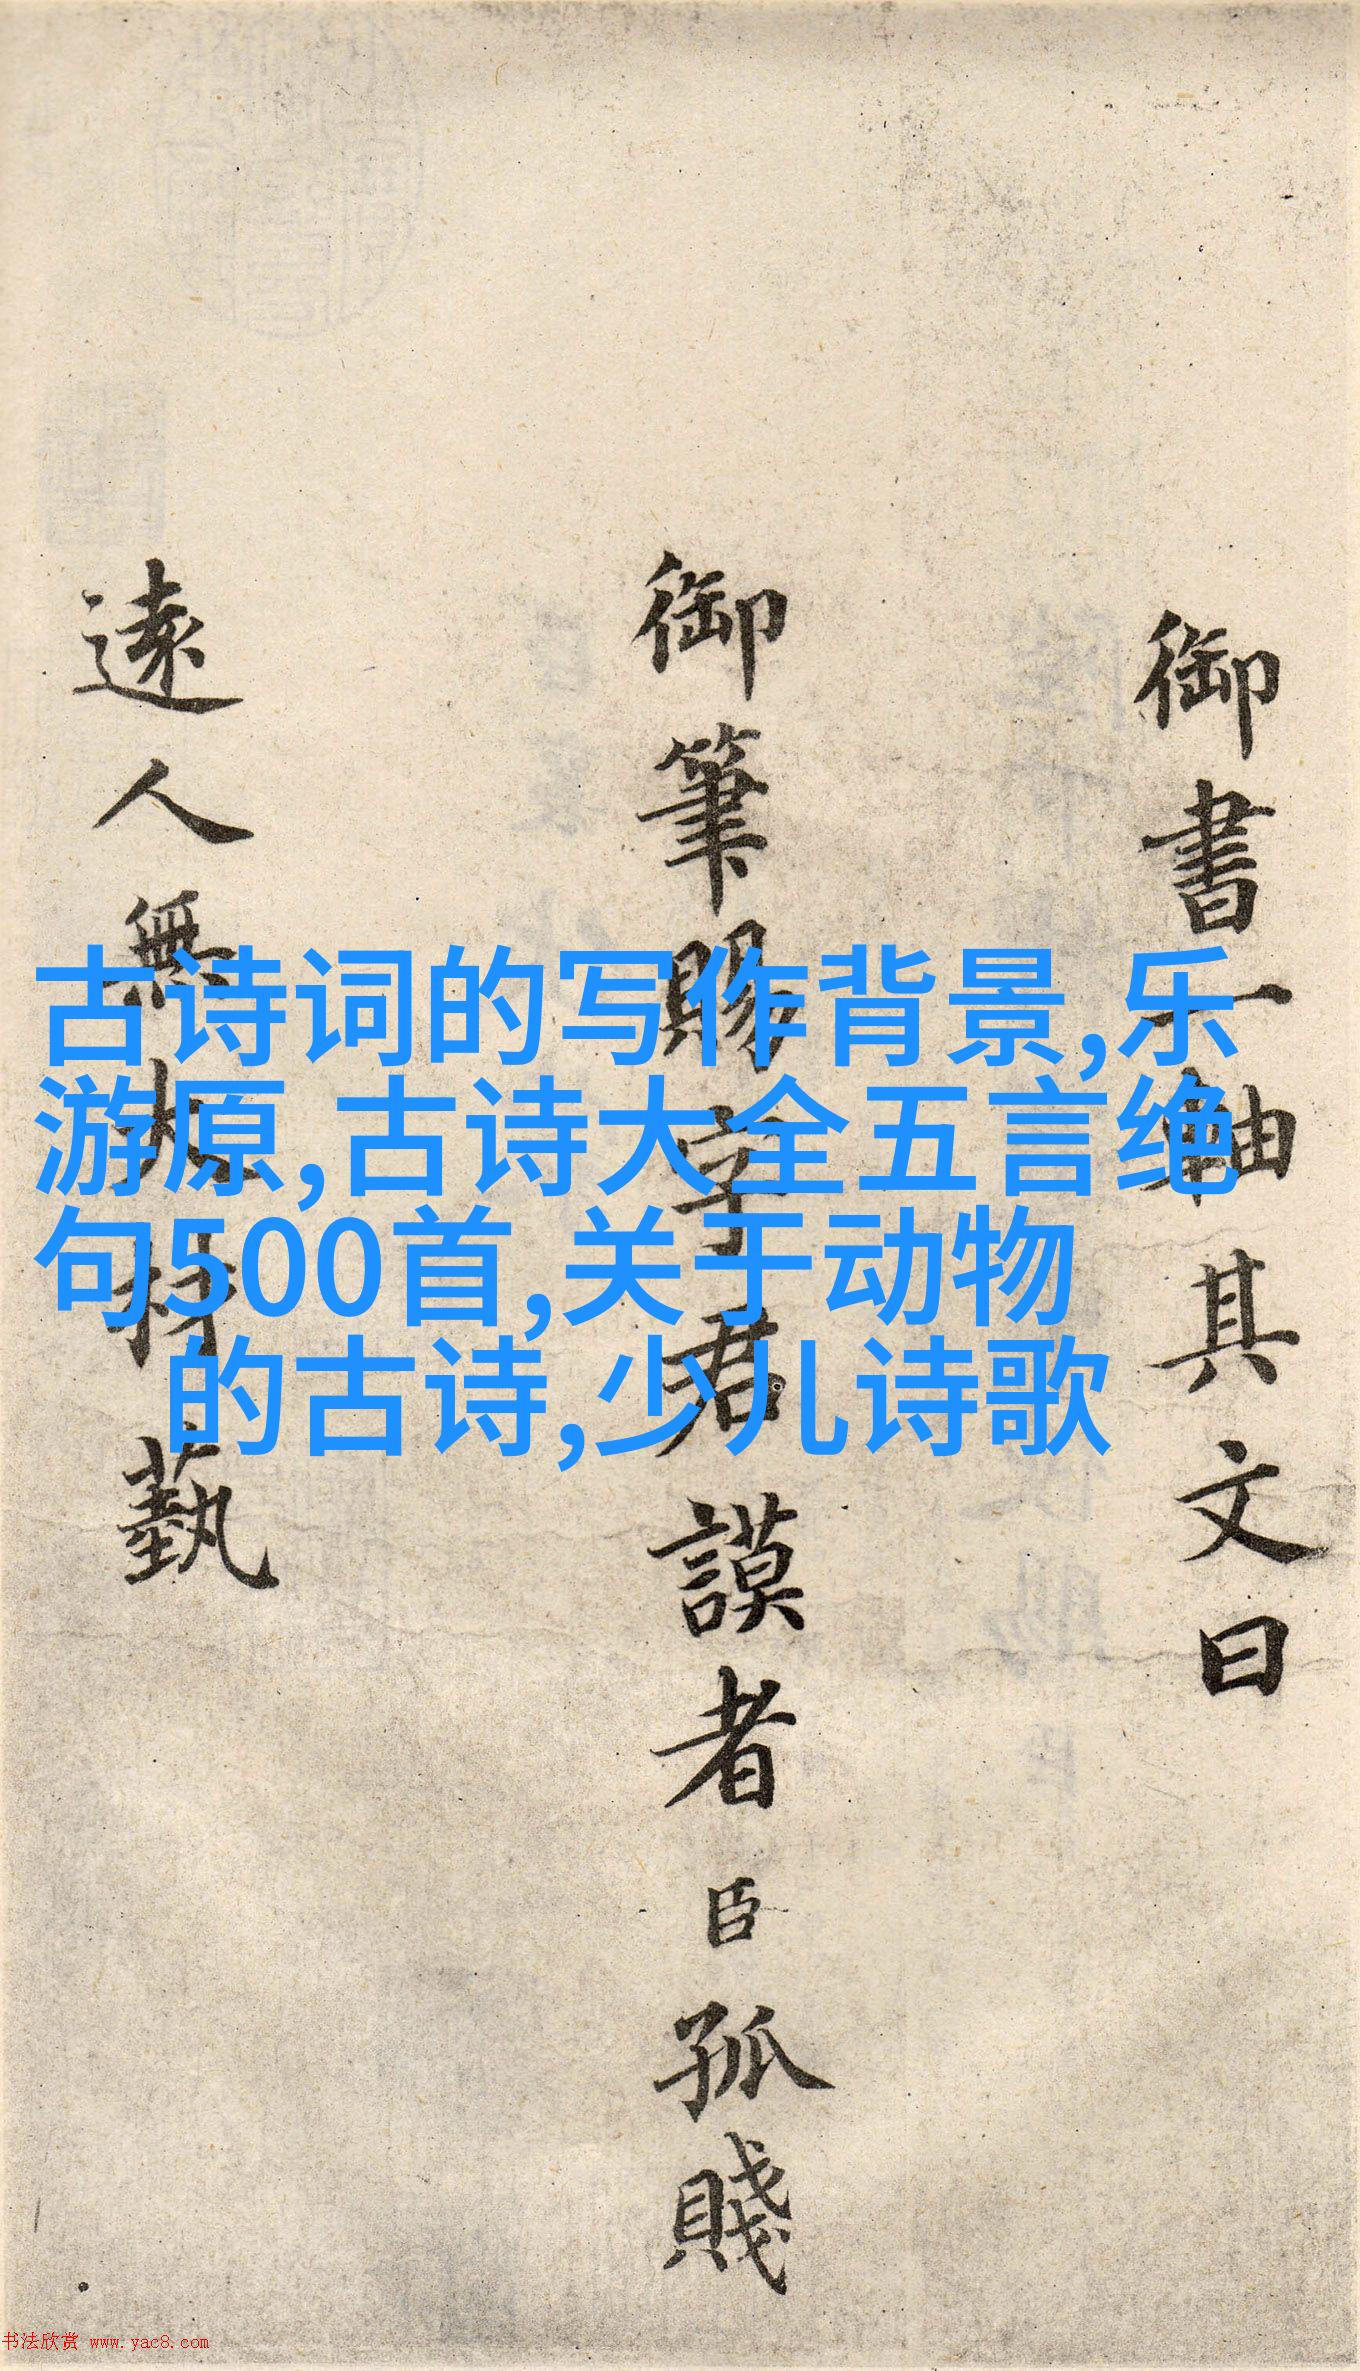 御書一軸其文曰
御筆賜字君謨者臣孤賤
遠人無大材藝
古诗词的写作背景,乐
游原,古诗大全五言绝
句500首,关于动物
的古诗,少儿诗歌
书法欣赏 www.yac8.com